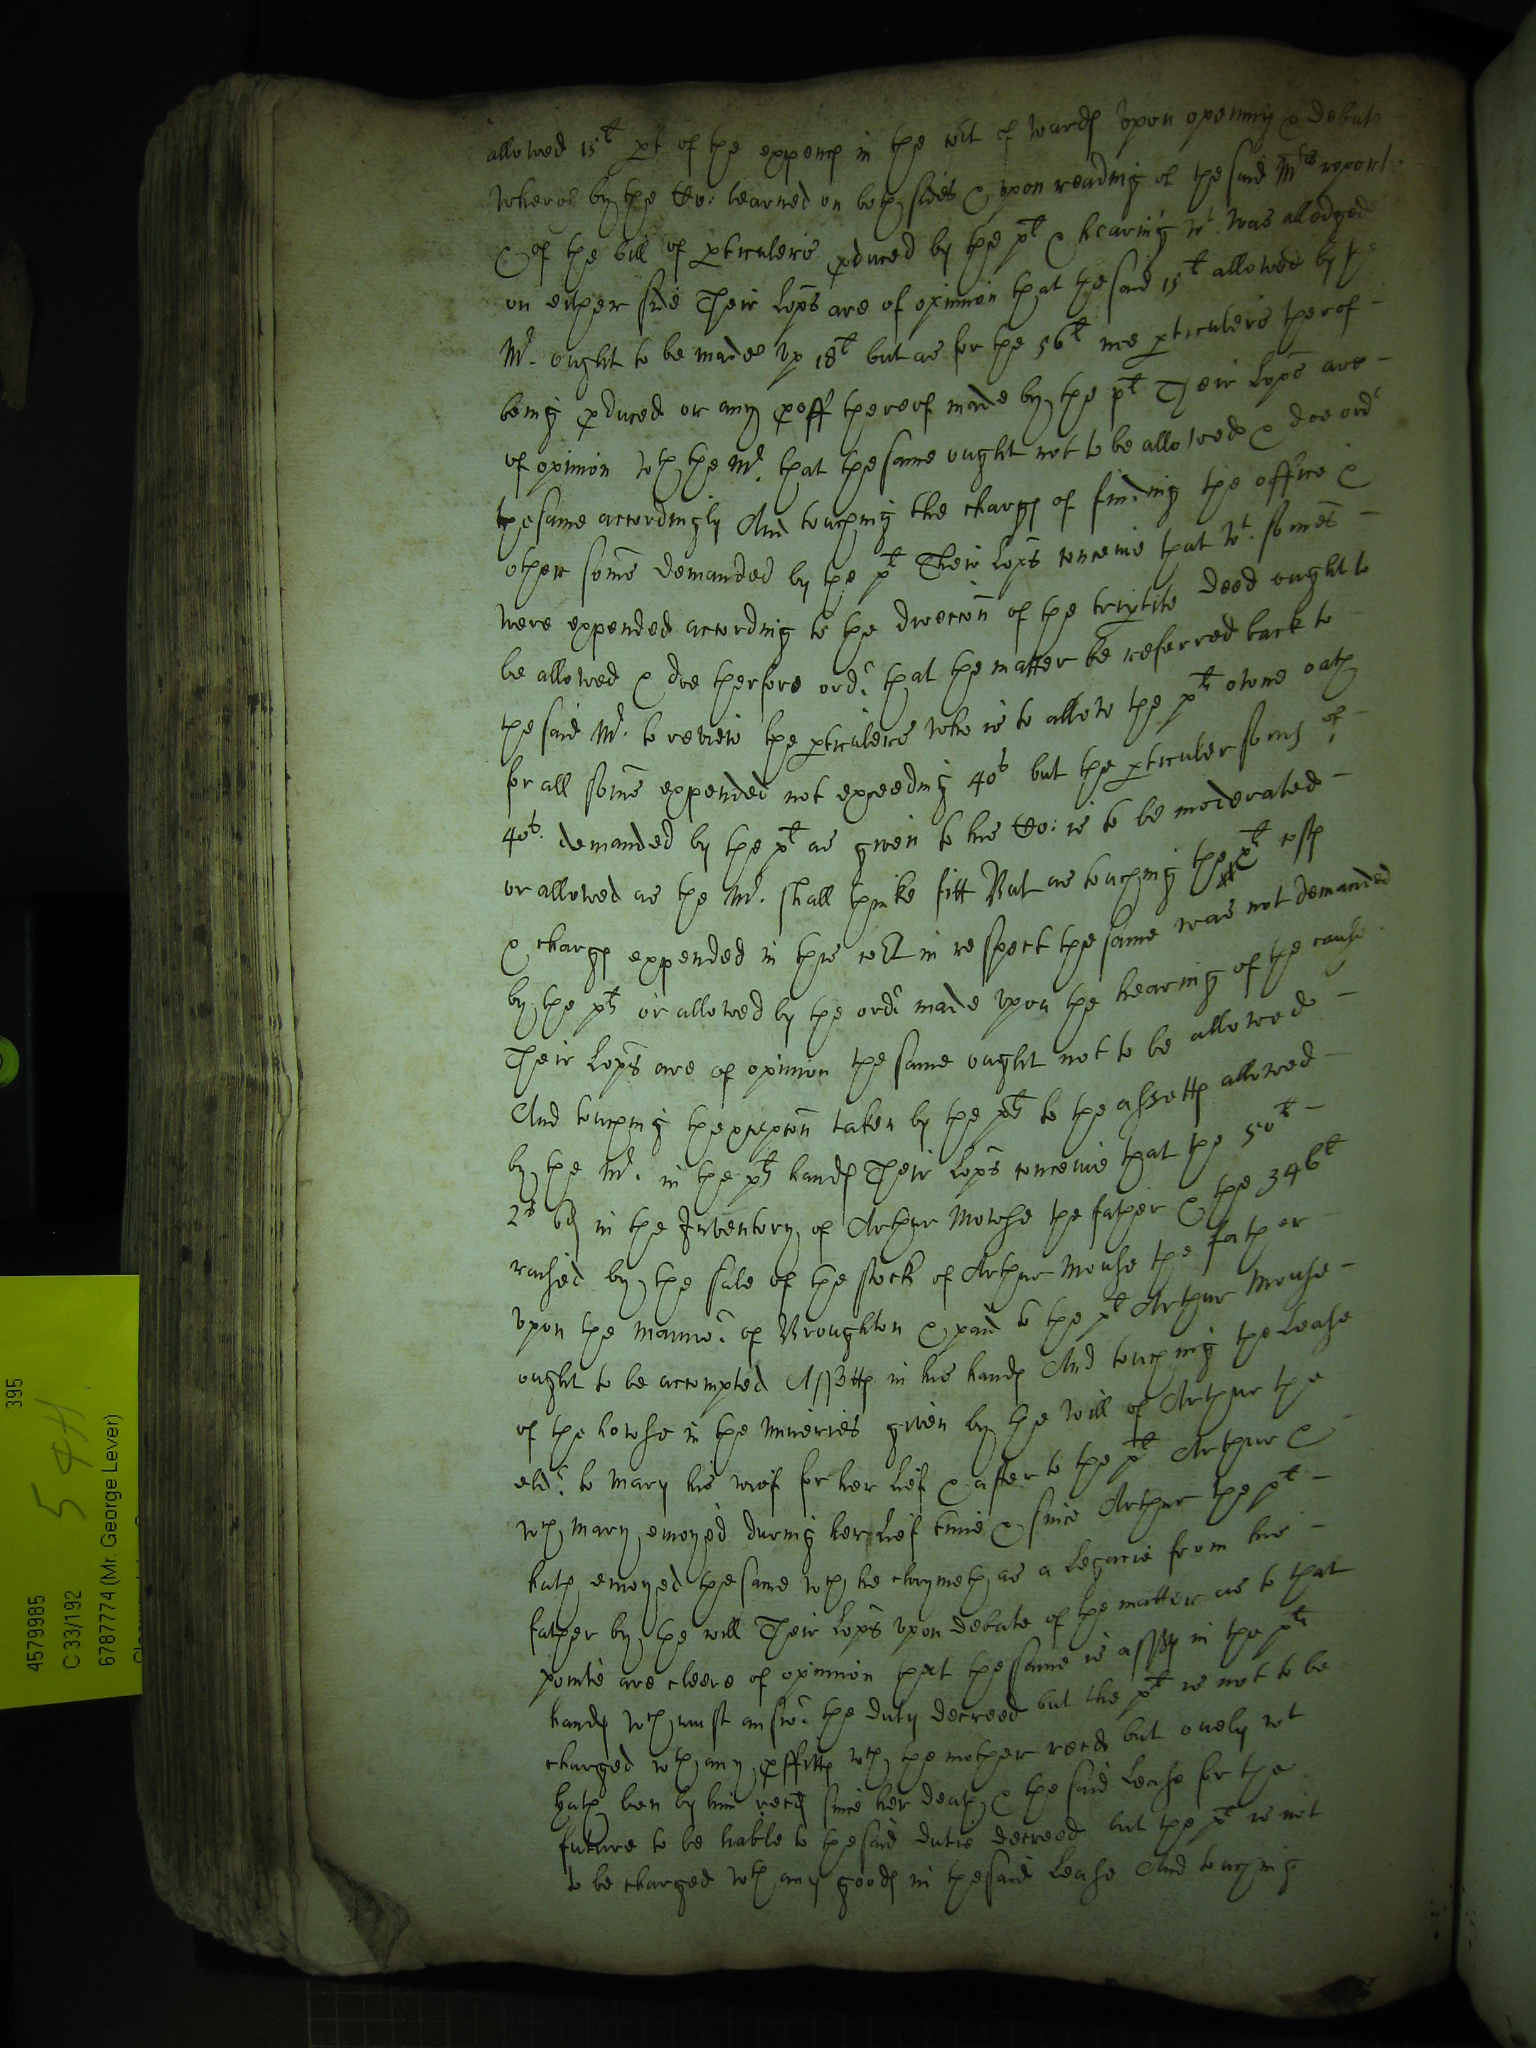 allowed 15li pt of the expences in the cort of wards Upon opening & debate
whereof by the Co: learned on both sides & upon reading of the said Mrs report
& of the bill of pticulers pduced by the plt & hearing wt was alledged
on either side Their Lops are of opinion that the said 15li allowed by the
Mr. ought to be made up 18li but as for the 56li noe pticulers therof
being pduced or any proff thereof made by the plt Their Lops are
of opinion wth the Mr. that the same ought not to be allowed & doe ordr
the same accordingly And touching the charges of finding the office &
other somes demanded by the plt Their Lops conceive that wt. somes
were expended according to the direccon of the triptite deed ought to
be allowed & doe therfore ordr. that the matter be referred back to
the said Mr. to review the pticulers who is to allow the plts owne oath
for all somes expended not exceeding 40s but the pticuler somes of
40s. demanded by the plt as given to his Co: is to be moderated
or allowed as the Mr. shall thinke fitt But as touching the plts costs
& charges expended in this cort in respect the same was not demanded
by the plt or allowed by the ordr made upon the hearing of the cause
Their Lops are of opinion the same ought not to be allowed
And touching thexcepcon taken by the plt to the assetts allowed
by the Mr. in the plts hands Their Lops conceive that the 50li
2s 6d in the Inventory of Arthur Mowse the father & the 346li
raised by the sale of the stock of Arthur Mouse the father
upon the mannor. of Wroughton & paid to the plt Arthur Mouse
ought to be accompted Assetts in his hands And touching the Lease
of the howse in the minories given by the will of Arthur the
eldr. to Mary his wief for her lief & after to the plt Arthur &
wch Mary enioyed during her lief time & since Arthur the plt
hath enioyed the same wch he claymeth as a Legacie from his
father by the will Their Lops upon debate of the matter as to that
pointe are cleere of opinion that the same is assetts in the plts
hands wch must answr. the duty decreed but the plt is not to be
charged wth any pffitts wch the mother recd but onely wt
hath ben by him recd since her death & the said Lease for the
future to be liable to the said dutie decreed but the plt is not
to be charged wth any goods in the said Lease And touching
4579985
395
C 33/192
6787774 (Mr. George Lever)